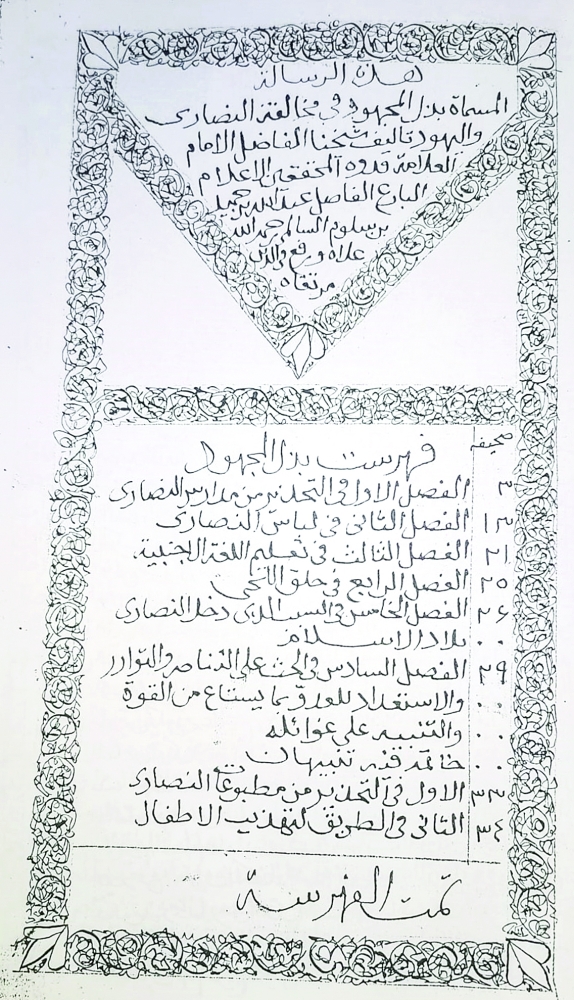 هذه الرسالة
المسماة بذل المجهود في مخالفة النصارى
واليهود تاليف شيخنا الفاضل الامام
العلامة قدوة المحققين الاعلام
البارع الفاضل عبدالله بن حميد
بن سلوم السالمي رحمه الله
علاه ورفع في الدارين
مرتقاه
صحيفه
فهرست بذل المجهود
٣ الفصل الاول في التحذير من مدارس النصارى
١٣ الفصل الثاني في لباس النصارى
٢١ الفصل الثالث في تعليم اللغة الاجنبية
٢٥ الفصل الرابع في حلق اللحى
٢٦ الفصل الخامس في السبب الذي دخل النصارى
٠٠ بلاد الاسلام
٢٩ الفصل السادس في الحث علي التناصر والتوازر
٠٠ والاستعداد للعدو بما يستاع من القوة
٠٠ والتنبيه علي غوائله
٠٠ خاتمة فيها تنبيهان
٣٣ الاول في التحذير من مطبوعات النصارى
٣٤ الثاني في الطريق لتهذيب الاطفال
تمت الفهرسة